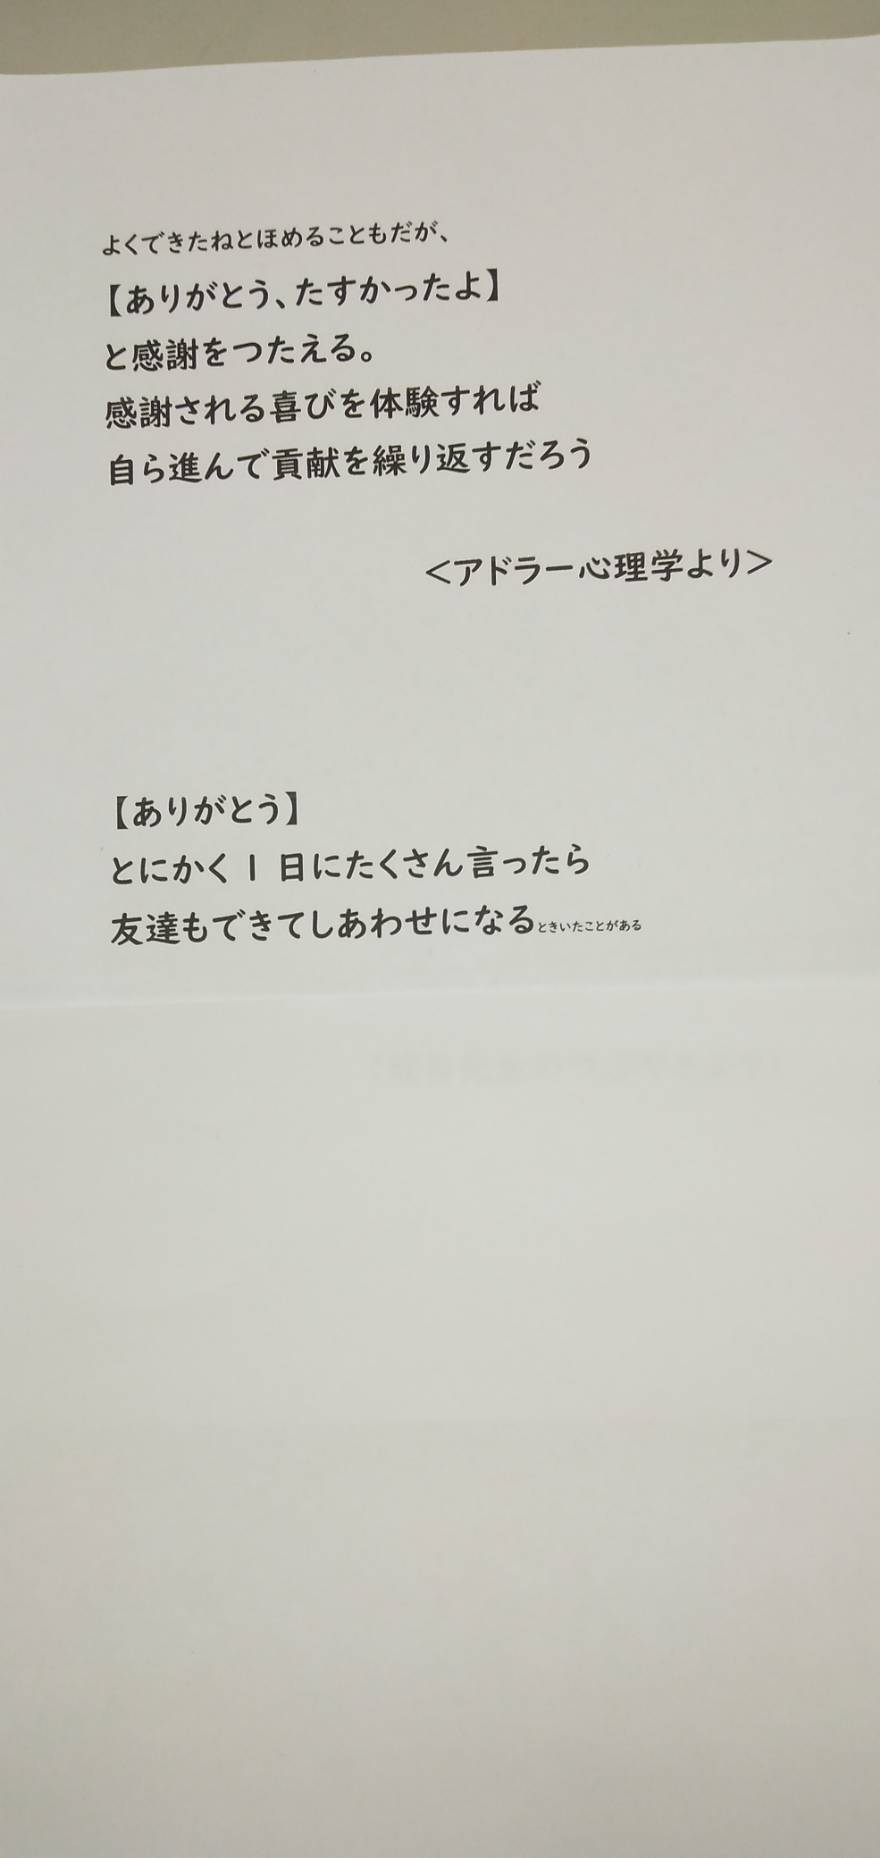 よくできたねとほめることもだが、
【ありがとう、たすかったよ】
と感謝をつたえる。
感謝される喜びを体験すれば
自ら進んで貢献を繰り返すだろう
<アドラー心理学より>
【ありがとう】
とにかく1日にたくさん言ったら
友達もできてしあわせになるときいたことがある